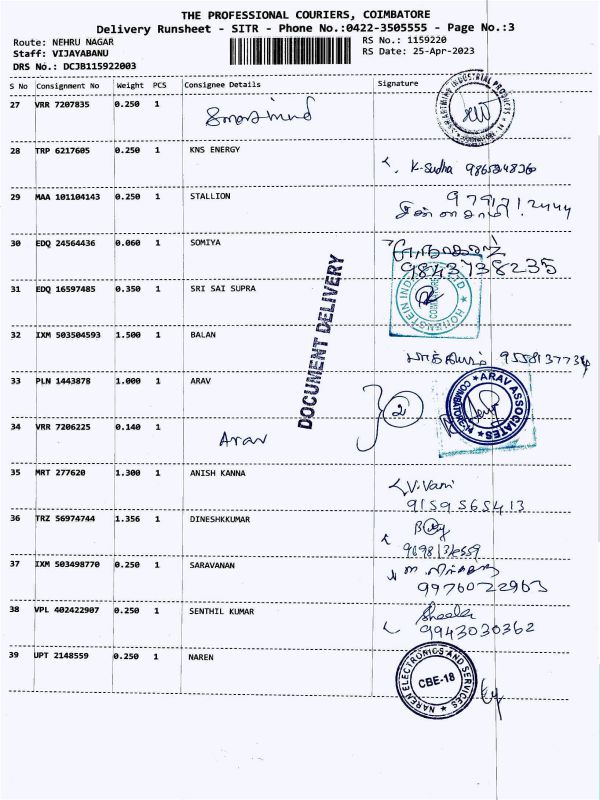 THE PROFESSIONAL COURIERS, COIMBATORE
Delivery Runsheet - SITR - Phone No.:0422-3505555 - Page No.:3
Route: NEHRU NAGAR
RS No.: 1159220
Staff: VIJAYABANU
RS Date: 25-Apr-2023
DRS No.: DCJB115922003
S No Consignment No Weight PCS Consignee Details Signature
27 VRR 7207835 0.250 1
28 TRP 6217605 0.250 1 KNS ENERGY
K-Sudha
29 MAA 101104143 0.250 1 STALLION
30 EDQ 24564436 0.060 1 SOMIYA
9843738235
31 EDQ 16597485 0.350 1 SRI SAI SUPRA
HOHENSTEIN COIMBATORE
DOCUMENT DELIVERY
32 IXM 503504593 1.500 1 BALAN
33 PLN 1443878 1.000 1 ARAV
2
ARAV ASSOCIATES
34 VRR 7206225 0.140 1 Arav
35 MRT 277620 1.300 1 ANISH KANNA
V.Vani
9159565413
36 TRZ 56974744 1.356 1 DINESHKKUMAR
37 IXM 503498770 0.250 1 SARAVANAN
9976022963
38 VPL 402422907 0.250 1 SENTHIL KUMAR
9943030362
39 UPT 2148559 0.250 1 NAREN
NAREN ELECTRONICS AND SERVICES
CBE-18